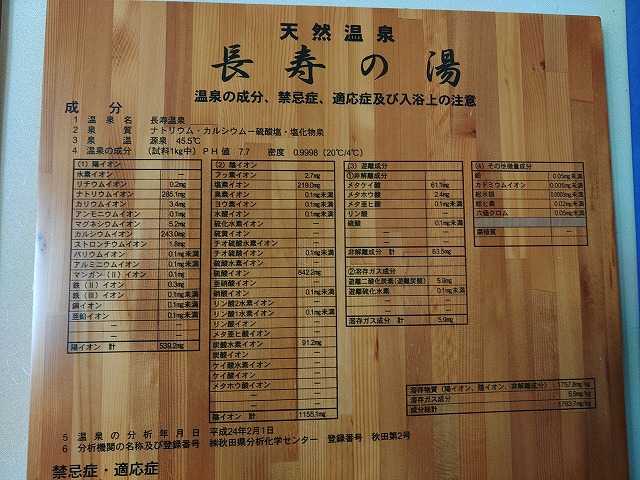 天然温泉
長寿の湯
温泉の成分、禁忌症、適応症及び入浴上の注意
成 分
1 温泉名 長寿温泉
2 泉質 ナトリウム・カルシウム－硫酸塩・塩化物泉
3 泉温 源泉 45.5℃
4 温泉の成分 (試料1kg中) PH値 7.7 密度 0.9998 (20℃/4℃)
(1) 陽イオン
水素イオン －
リチウムイオン 0.2mg
ナトリウムイオン 285.1mg
カリウムイオン 3.4mg
アンモニウムイオン 0.1mg未満
マグネシウムイオン 5.2mg
カルシウムイオン 243.0mg
ストロンチウムイオン 1.8mg
バリウムイオン 0.1mg未満
アルミニウムイオン 0.1mg未満
マンガン(Ⅱ)イオン 0.1mg未満
鉄(Ⅱ)イオン 0.3mg
鉄(Ⅲ)イオン 0.1mg未満
銅イオン 0.1mg未満
亜鉛イオン 0.1mg未満
－ －
－ －
陽イオン 計 539.2mg
(2) 陰イオン
フッ素イオン 2.7mg
塩素イオン 219.0mg
臭素イオン 0.1mg未満
ヨウ素イオン 0.1mg未満
水酸イオン 0.1mg未満
硫化水素イオン －
硫化イオン －
チオ硫酸水素イオン －
チオ硫酸イオン 0.1mg未満
硫酸水素イオン －
硫酸イオン 842.2mg
亜硝酸イオン －
硝酸イオン 0.1mg未満
リン酸2水素イオン －
リン酸1水素イオン 0.1mg未満
リン酸イオン －
メタ亜ヒ酸イオン －
炭酸水素イオン 91.2mg
炭酸イオン －
ケイ酸水素イオン －
ケイ酸イオン －
メタホウ酸イオン －
－ －
－ －
陰イオン 計 1155.1mg
(3) 遊離成分
①非解離成分
メタケイ酸 61.1mg
メタホウ酸 2.4mg
メタ亜ヒ酸 0.1mg未満
リン酸 －
硫酸 0.1mg未満
－ －
－ －
非解離成分 計 63.5mg
②溶存ガス成分
遊離二酸化炭素(遊離炭酸) 5.9mg
遊離硫化水素 0.1mg未満
－ －
－ －
溶存ガス成分 計 5.9mg
(4) その他微量成分
鉛 0.05mg未満
カドミウムイオン 0.005mg未満
総水銀 0.0003mg未満
総ヒ素 0.02mg未満
六価クロム 0.05mg未満
腐植質 －
溶存物質 (陽イオン、陰イオン、非解離成分) 1757.8mg/kg
溶存ガス成分 5.9mg/kg
成分総計 1763.7mg/kg
5 温泉の分析年月日 平成24年2月1日
6 分析機関の名称及び登録番号 ㈱秋田県分析化学センター 登録番号 秋田第2号
禁忌症・適応症